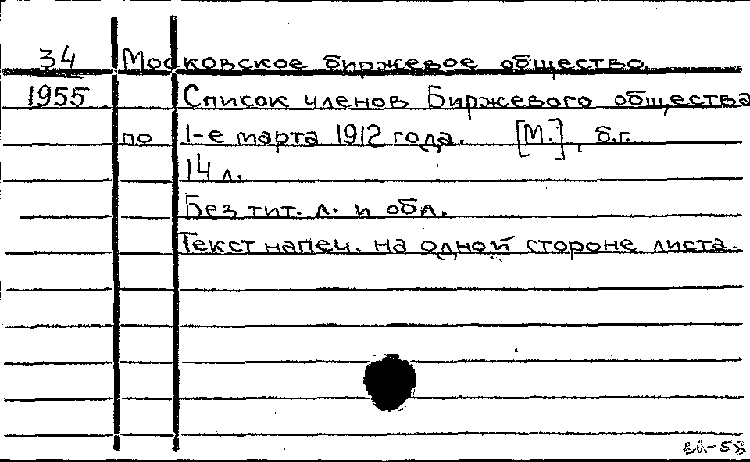 34 Московское биржевое общество.
1955 Список членов Биржевого общества
по 1-е марта 1912 года. [М.], б.г.
14 л.
Без тит. л. и обл.
Текст напеч. на одной стороне листа.